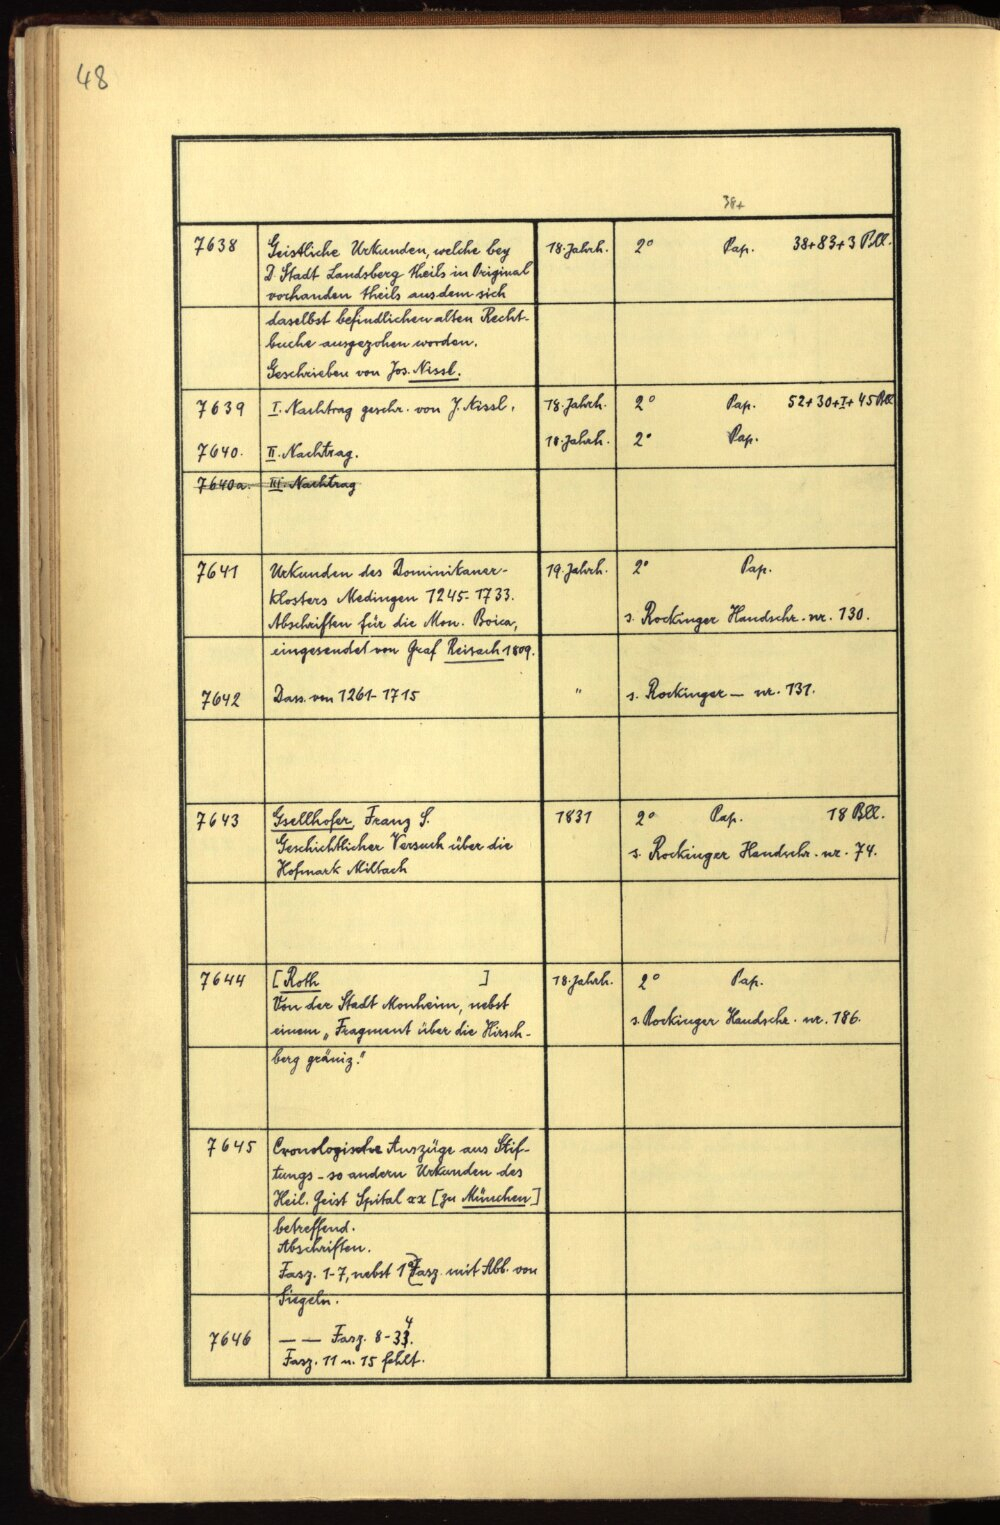 48
38+
7638 Geistliche Urkunden, welche bey 18. Jahrh. 2° Pap. 38+83+3 Bll.
D. Stadt Landsberg theils in Original
vorhanden theils aus dem sich
daselbst befindlichen alten Recht-
buche ausgezohen worden.
Geschrieben von Jos. Nissl.
7639 I. Nachtrag geschr. von J. Nissl. 18. Jahrh. 2° Pap. 52+30+I+45 Bll
7640. II. Nachtrag. 18. Jahrh. 2° Pap.
7640a. III. Nachtrag
7641 Urkunden des Dominikaner- 19. Jahrh. 2° Pap.
klosters Medingen 1245-1733.
Abschriften für die Mon. Boica, s. Rockinger Handschr. nr. 130.
eingesendet von Graf Reisach 1809.
7642 Dass. von 1261-1715 " s. Rockinger — nr. 131.
7643 Gsellhofer, Franz S. 1831 2° Pap. 18 Bll.
Geschichtlicher Versuch über die s. Rockinger Handschr. nr. 74.
Hofmark Milbach
7644 [Roth ] 18. Jahrh. 2° Pap.
Von der Stadt Monheim, nebst
einem „Fragment über die Hirsch- s. Rockinger Handschr. nr. 186.
berg gräniz."
7645 Cronologische Auszüge aus Stif-
tungs- so andern Urkunden des
Heil. Geist Spital xx [zu München]
betreffend.
Abschriften.
Fasz. 1-7, nebst 1 Fasz. mit Abb. von
Siegeln.
7646 — — Fasz. 8-334.
Fasz. 11 u. 15 fehlt.